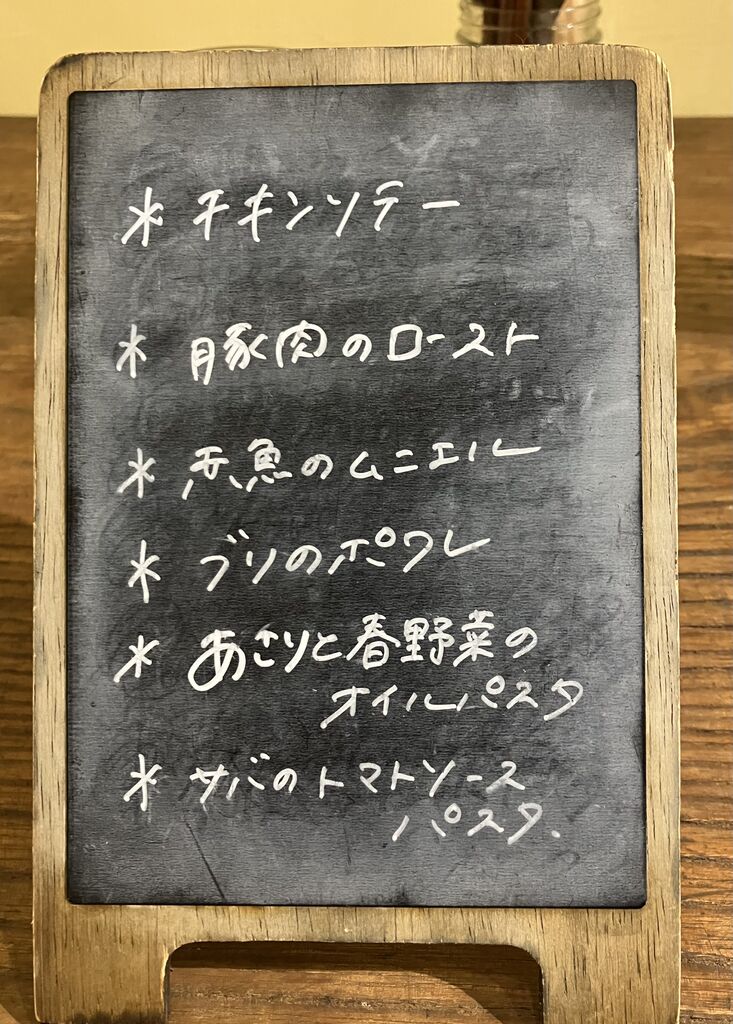 * チキンソテー
* 豚肉のロースト
* 赤魚のムニエル
* ブリのポワレ
* あさりと春野菜の
オイルパスタ
* サバのトマトソース
パスタ.